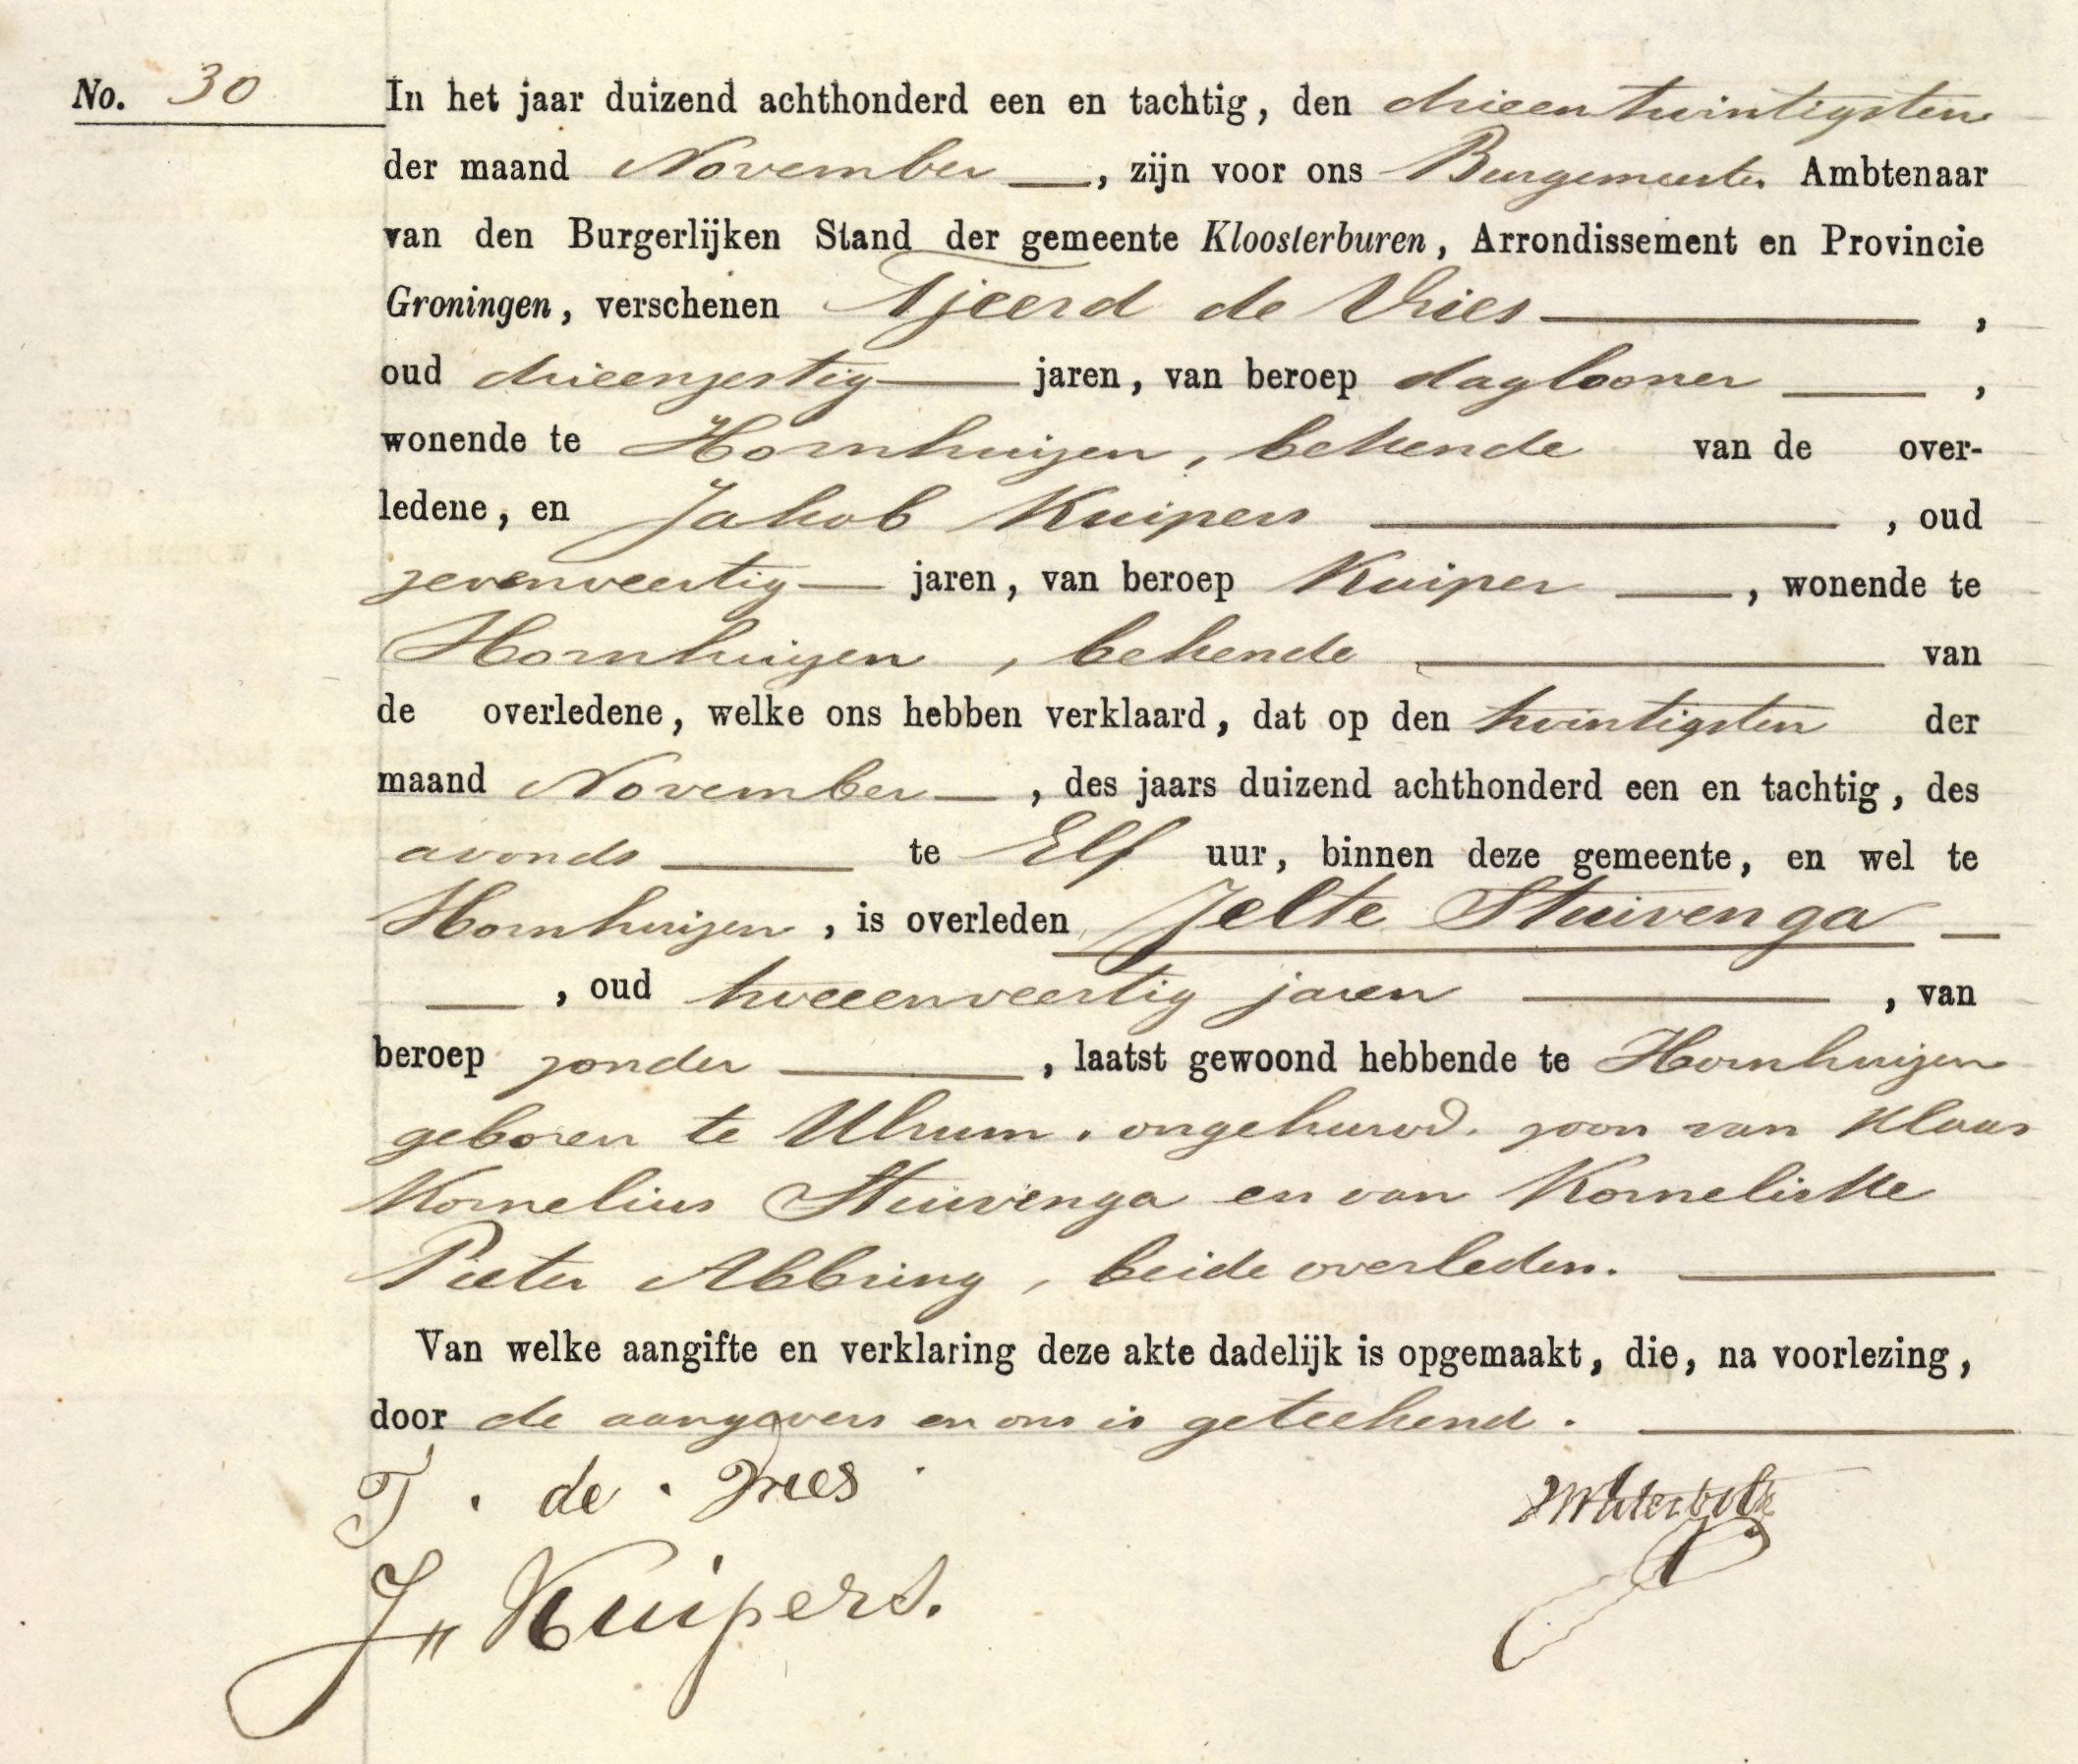 No. 30
In het jaar duizend achthonderd een en tachtig, den drieentwintigsten
der maand November —, zijn voor ons Burgemeester Ambtenaar
van den Burgerlijken Stand der gemeente Kloosterburen, Arrondissement en Provincie
Groningen, verschenen Tjeerd de Vries — ,
oud drieenzestig — jaren, van beroep daglooner — ,
wonende te Hornhuizen, bekende van de over-
ledene, en Jakob Kuipers — , oud
zevenveertig — jaren, van beroep Kuiper —, wonende te
Hornhuizen, bekende — van
de overledene, welke ons hebben verklaard, dat op den twintigsten der
maand November — , des jaars duizend achthonderd een en tachtig, des
avonds — te Elf uur, binnen deze gemeente, en wel te
Hornhuizen, is overleden Jelte Stuivenga —
— , oud tweeenveertig jaren — , van
beroep zonder — , laatst gewoond hebbende te Hornhuizen
geboren te Ulrum, ongehuwd, zoon van Klaas
Kornelius Stuivenga en van Korneliske
Pieter Abbring, beide overleden. —
Van welke aangifte en verklaring deze akte dadelijk is opgemaakt, die, na voorlezing,
door de aangevers en ons is geteekend. —
T. de. Vries
J,, Kuipers.